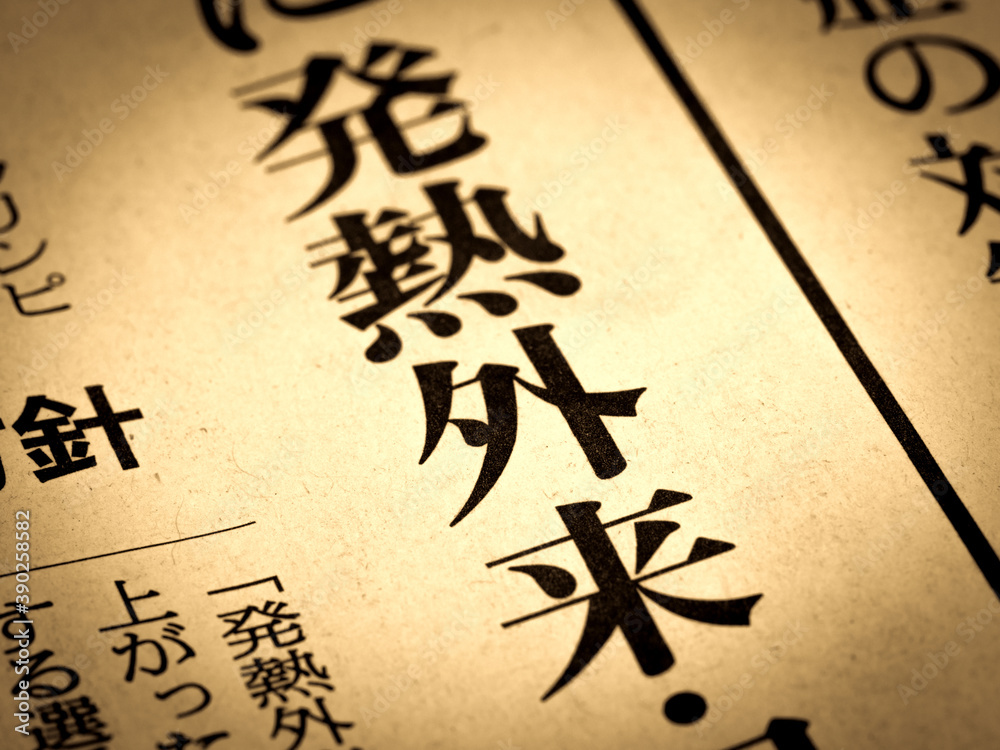 の
に発熱外来・
針
「発熱外
上がった
する選
コンピ
Adobe Stock | #390258582